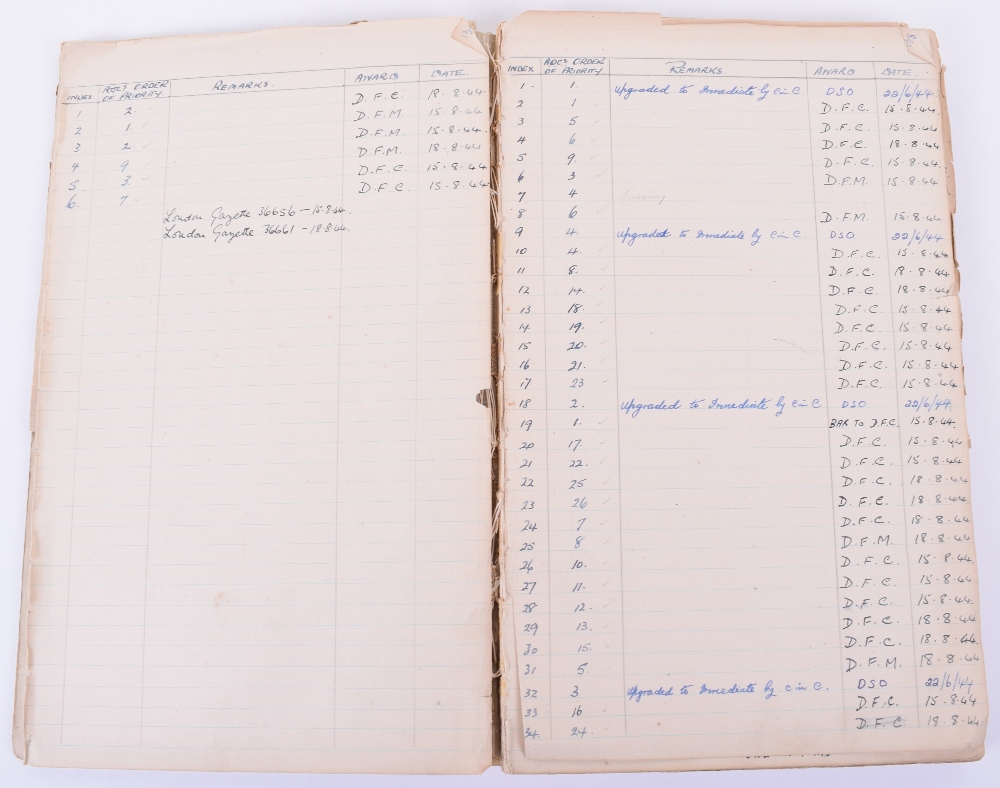 INDEX AOC's ORDER OF PRIORITY REMARKS AWARD DATE
1 2. D.F.C. 18.8.44
2 1. D.F.M. 15.8.44
3 2. D.F.M. 15.8.44
4 9. D.F.M. 18.8.44
5 3. D.F.C. 15.8.44
6. 7 D.F.C. 15.8.44
London Gazette 36656 – 15.8.44.
London Gazette 36661 – 18.8.44.
INDEX AOC's ORDER OF PRIORITY REMARKS AWARD DATE
1 1. Upgraded to Immediate by C in C DSO 22/6/44
2 1 D.F.C. 15.8.44
3 5 D.F.C. 15.8.44
4 6 D.F.C. 18.8.44
5 9. D.F.C. 15.8.44
6 3 D.F.M. 15.8.44
7 4
8 6 D.F.M. 15.8.44
9 4. Upgraded to Immediate by C in C. DSO 22/6/44
10 4. D.F.C. 15.8.44
11 8. D.F.C. 18.8.44
12 14. D.F.C. 18.8.44
13 18. D.F.C. 15.8.44
14 19. D.F.C. 15.8.44
15 20. D.F.C. 15.8.44
16 21. D.F.C. 15.8.44
17 23 D.F.C. 15.8.44
18 2. Upgraded to Immediate by C in C DSO 22/6/44
19 1. BAR TO D.F.C. 15.8.44.
20 17. D.F.C. 15.8.44
21 22. D.F.C. 15.8.44
22 25 D.F.C. 18.8.44
23 26 D.F.C. 18.8.44
24 7 D.F.C. 18.8.44
25 8 D.F.M. 18.8.44
26 10. D.F.C. 15.8.44
27 11. D.F.C. 15.8.44
28 12. D.F.C. 15.8.44
29 13. D.F.C. 18.8.44
30 15. D.F.C. 18.8.44
31 5 D.F.M. 18.8.44
32 3 Upgraded to Immediate by C in C. DSO 22/6/44
33 16 D.F.C. 15.8.44
34. 24. D.F.C 18.8.44